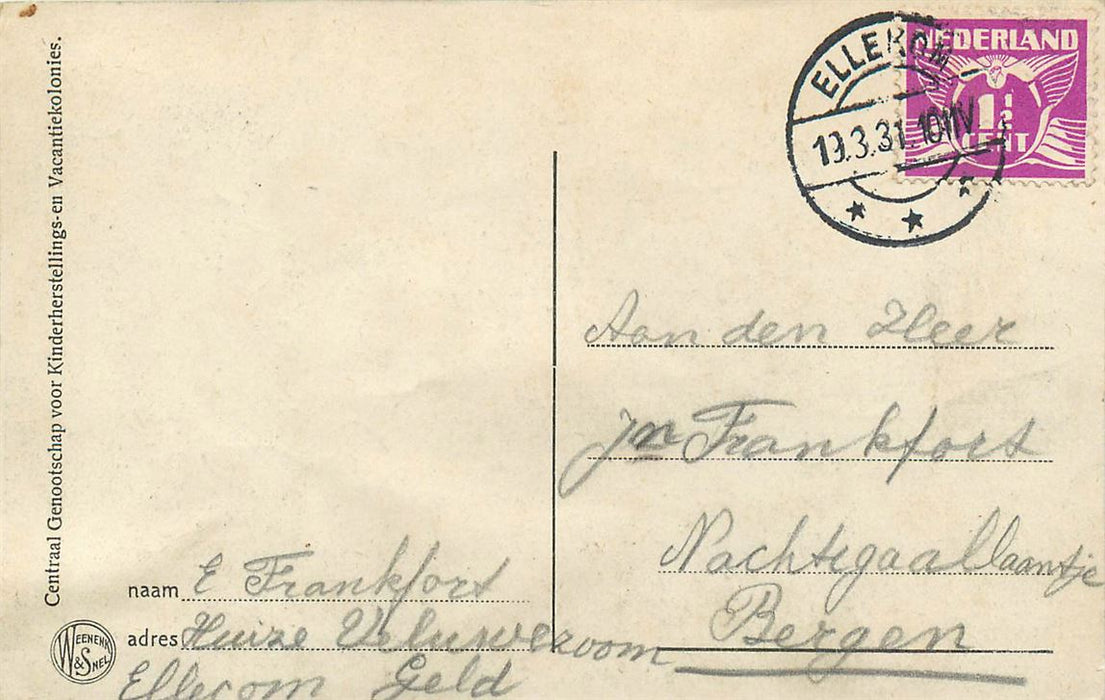 Centraal Genootschap voor Kinderherstellings- en Vacantiekolonies.
ELLEKOM
19.3.31.10 11V
NEDERLAND
1½
CENT
Aan den Heer
Jn Frankfort
Nachtegaallaantje
Bergen
naam E Frankfort
adres Huize Veluwezoom
Ellecom Geld
WEENENK
& SNEL